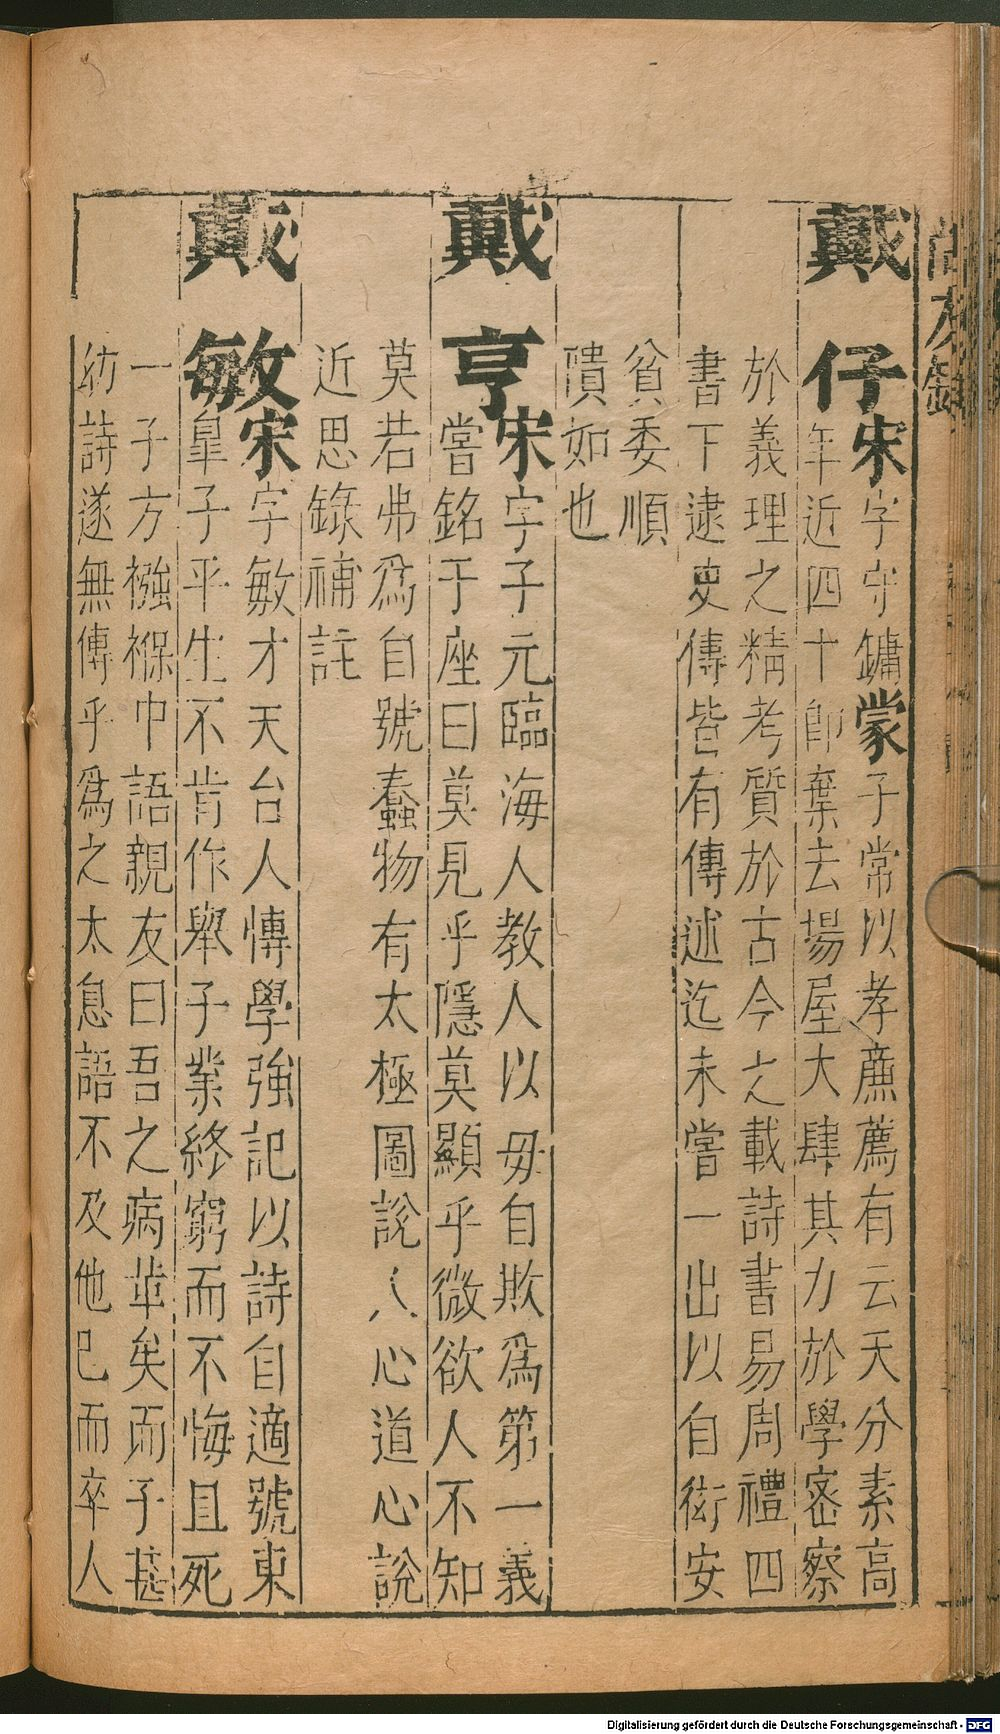 尚友錄
戴仔宋字守鏞蒙子常以孝廉薦有云天分素高
年近四十卽棄去場屋大肆其力於學密察
於義理之精考質於古今之載詩書易周禮四
書下逮史傳皆有傳述迄未嘗一出以自衒安
貧委順
隤如也
戴亨宋字子元臨海人教人以毋自欺爲第一義
嘗銘于座曰莫見乎隱莫顯乎微欲人不知
莫若弗爲自號蠢物有太極圖說人心道心說
近思錄補註
戴敏宋字敏才天台人博學強記以詩自適號東
皐子平生不肯作舉子業終窮而不悔且死
一子方襁褓中語親友曰吾之病革矣而子甚
幼詩遂無傳乎爲之太息語不及他已而卒人
Digitalisierung gefördert durch die Deutsche Forschungsgemeinschaft - DFG